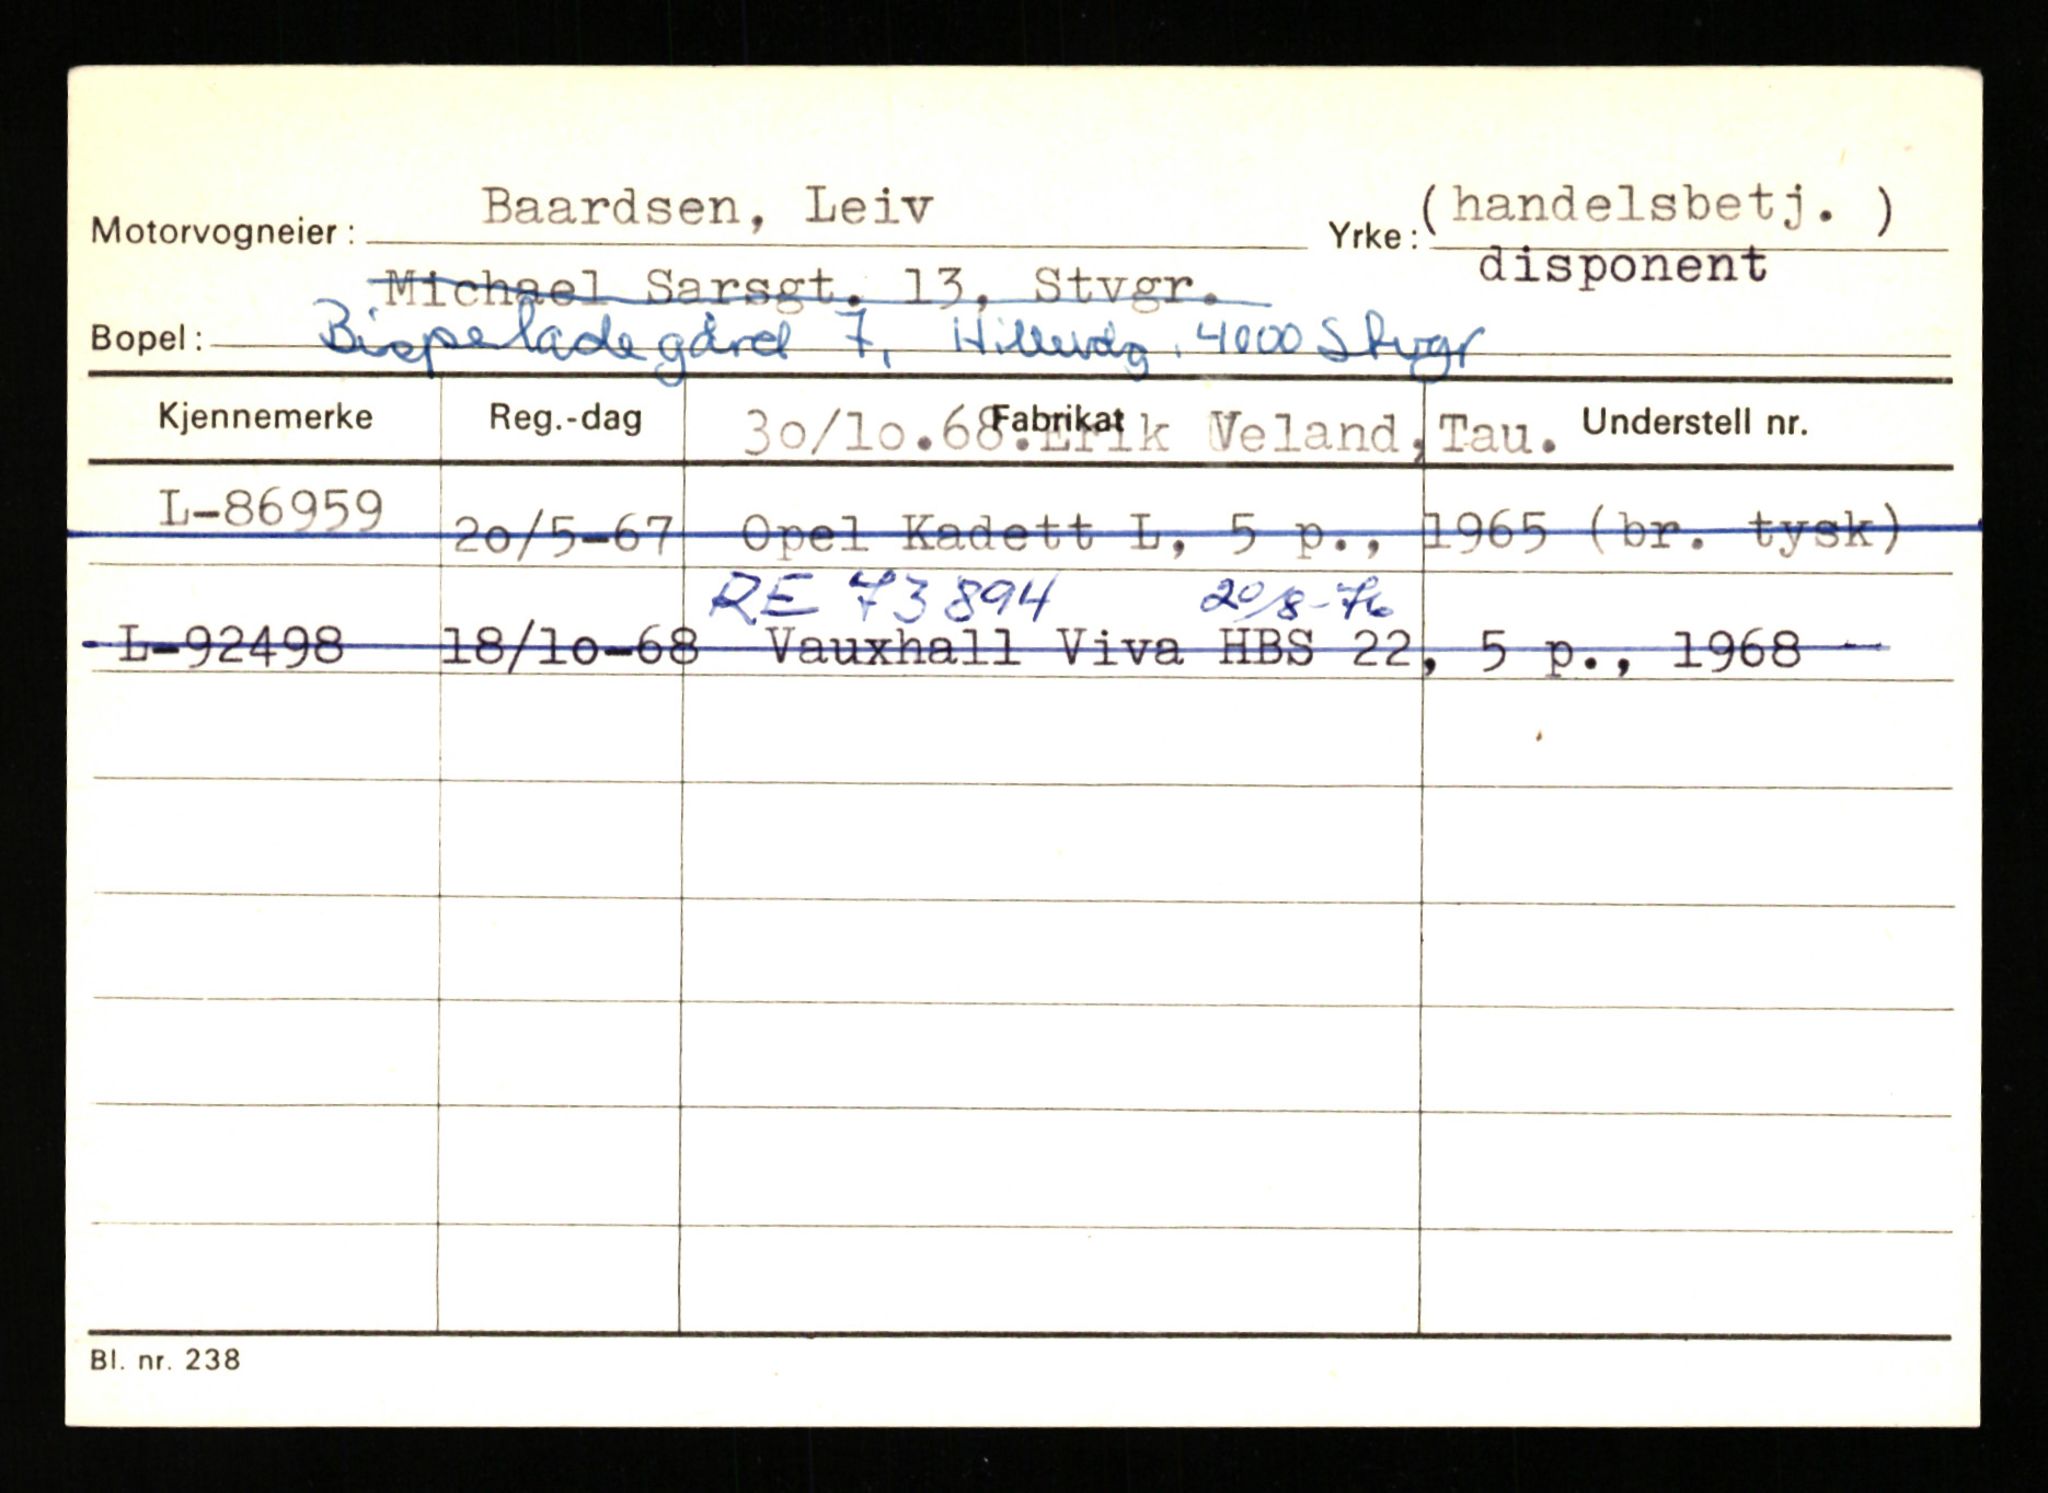 Motorvogneier: Baardsen, Leiv Yrke: (handelsbetj. )
disponent
Michael Sarsgt. 13, Stvgr.
Bopel: Bispeladegård 7, Hillevåg, 4000 Stvgr
Kjennemerke Reg.-dag Fabrikat Understell nr.
30/10.68.Erik Veland, Tau.
L-86959 20/5-67 Opel Kadett L, 5 p., 1965 (br. tysk)
RE 73894 20/8-76
L-92498 18/10-68 Vauxhall Viva HBS 22, 5 p., 1968
Bl. nr. 238